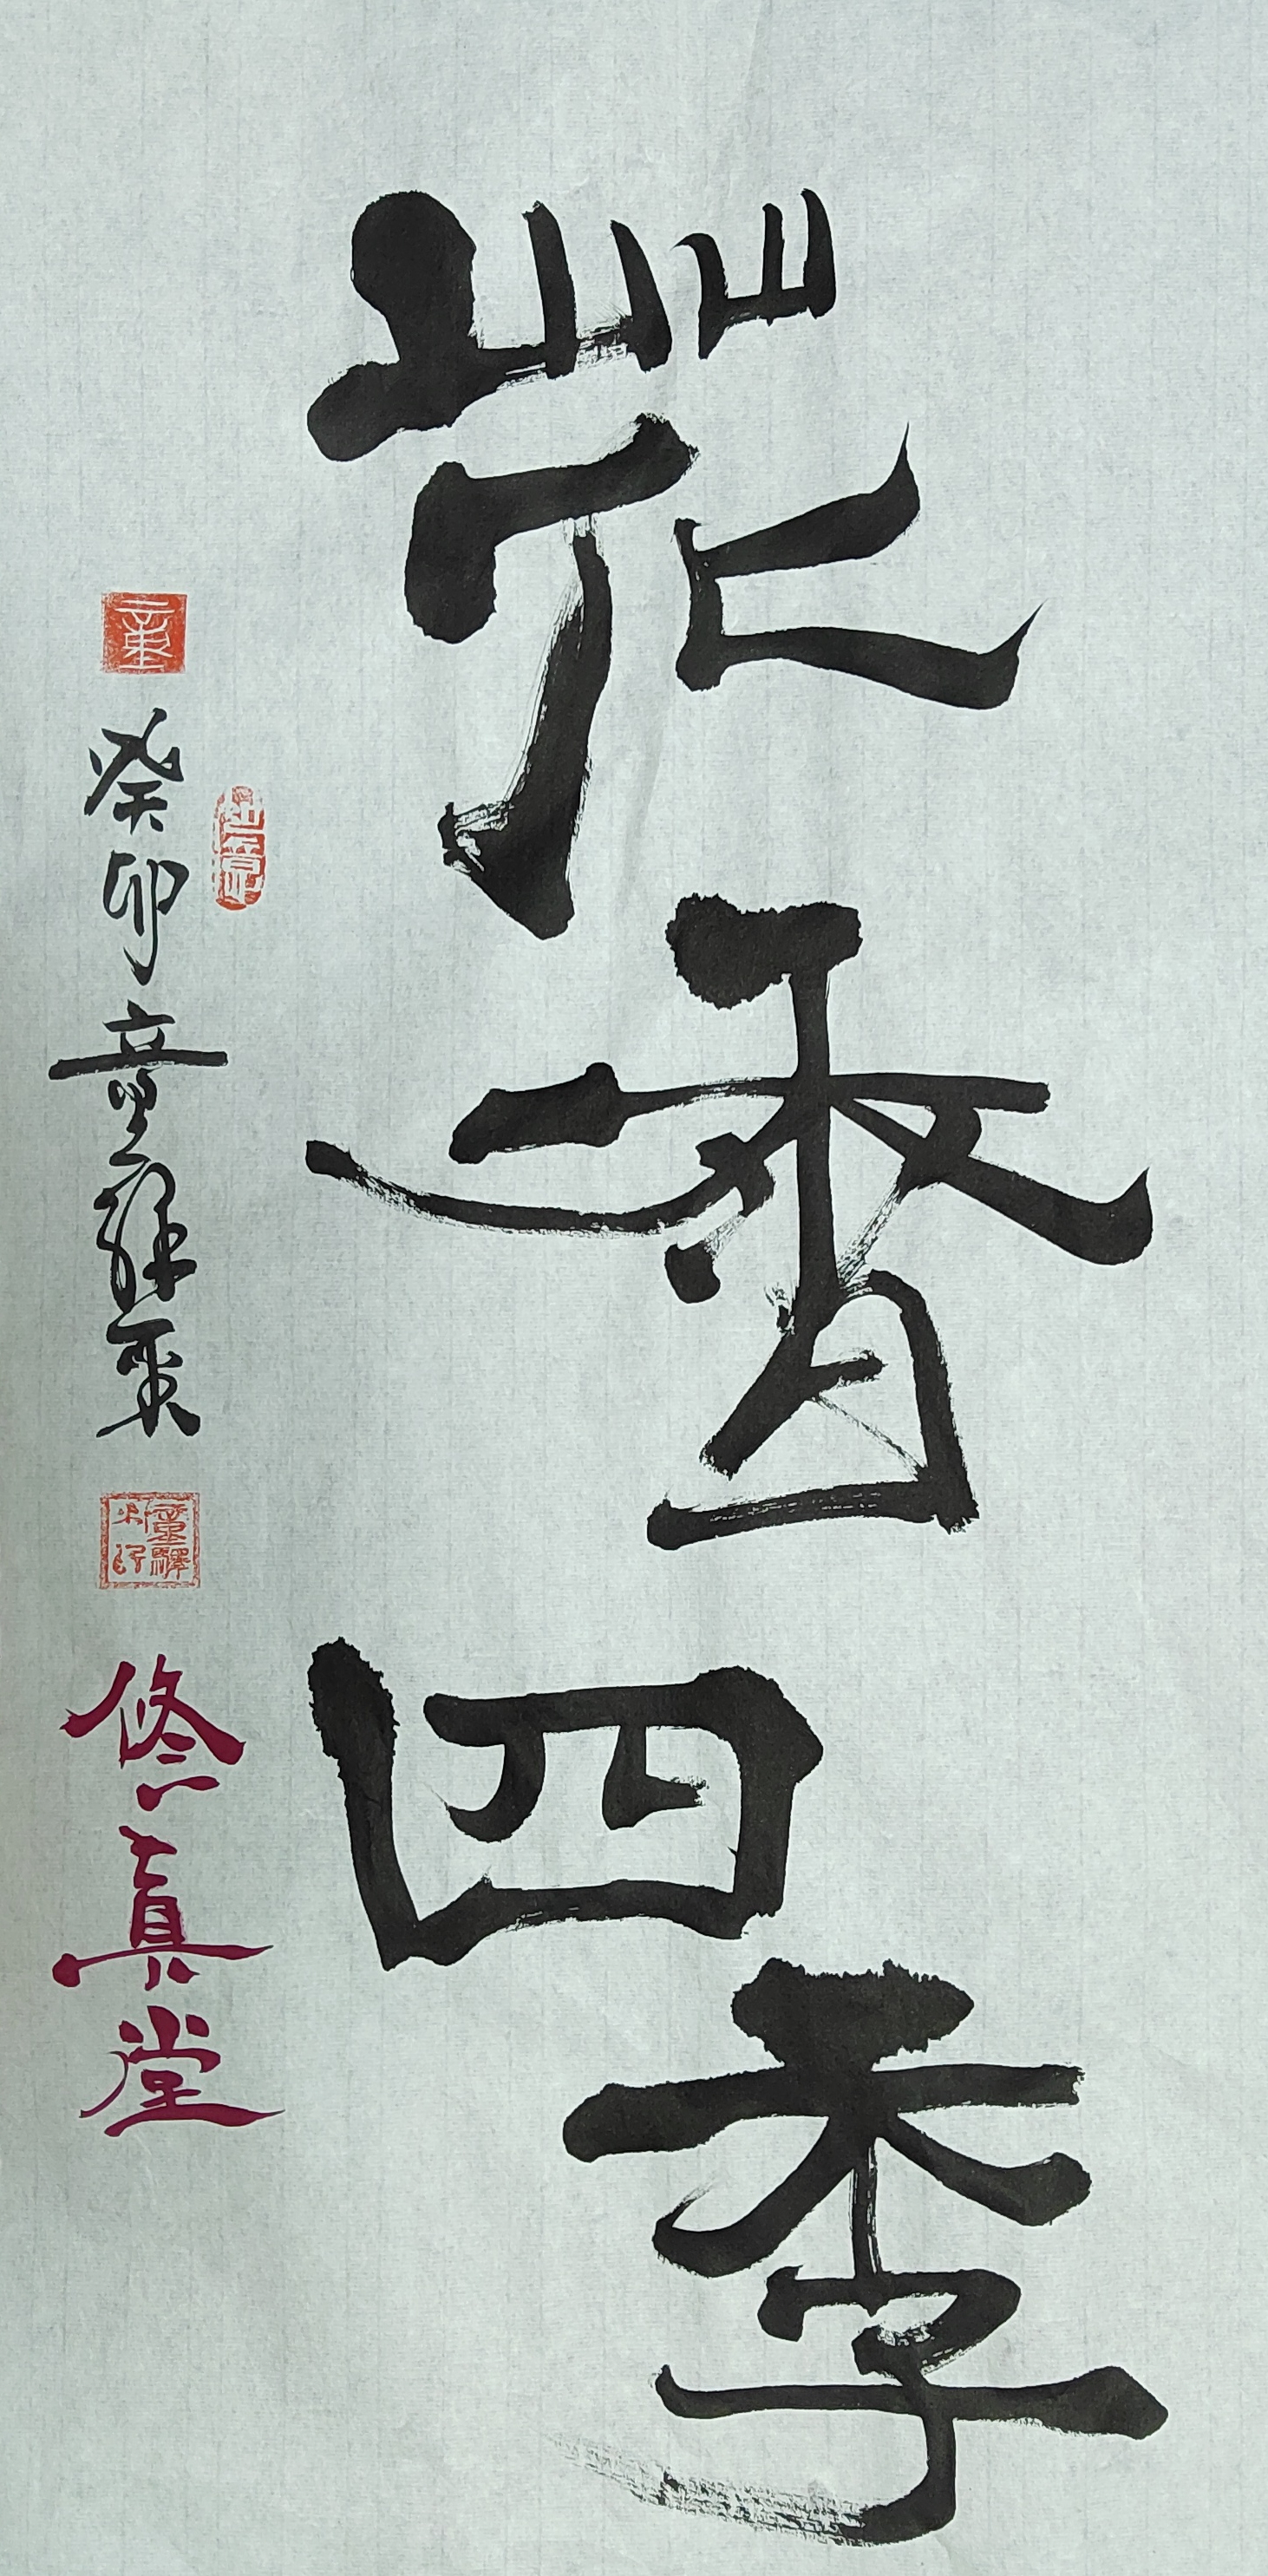 花香四季
癸卯童驛来
修真堂